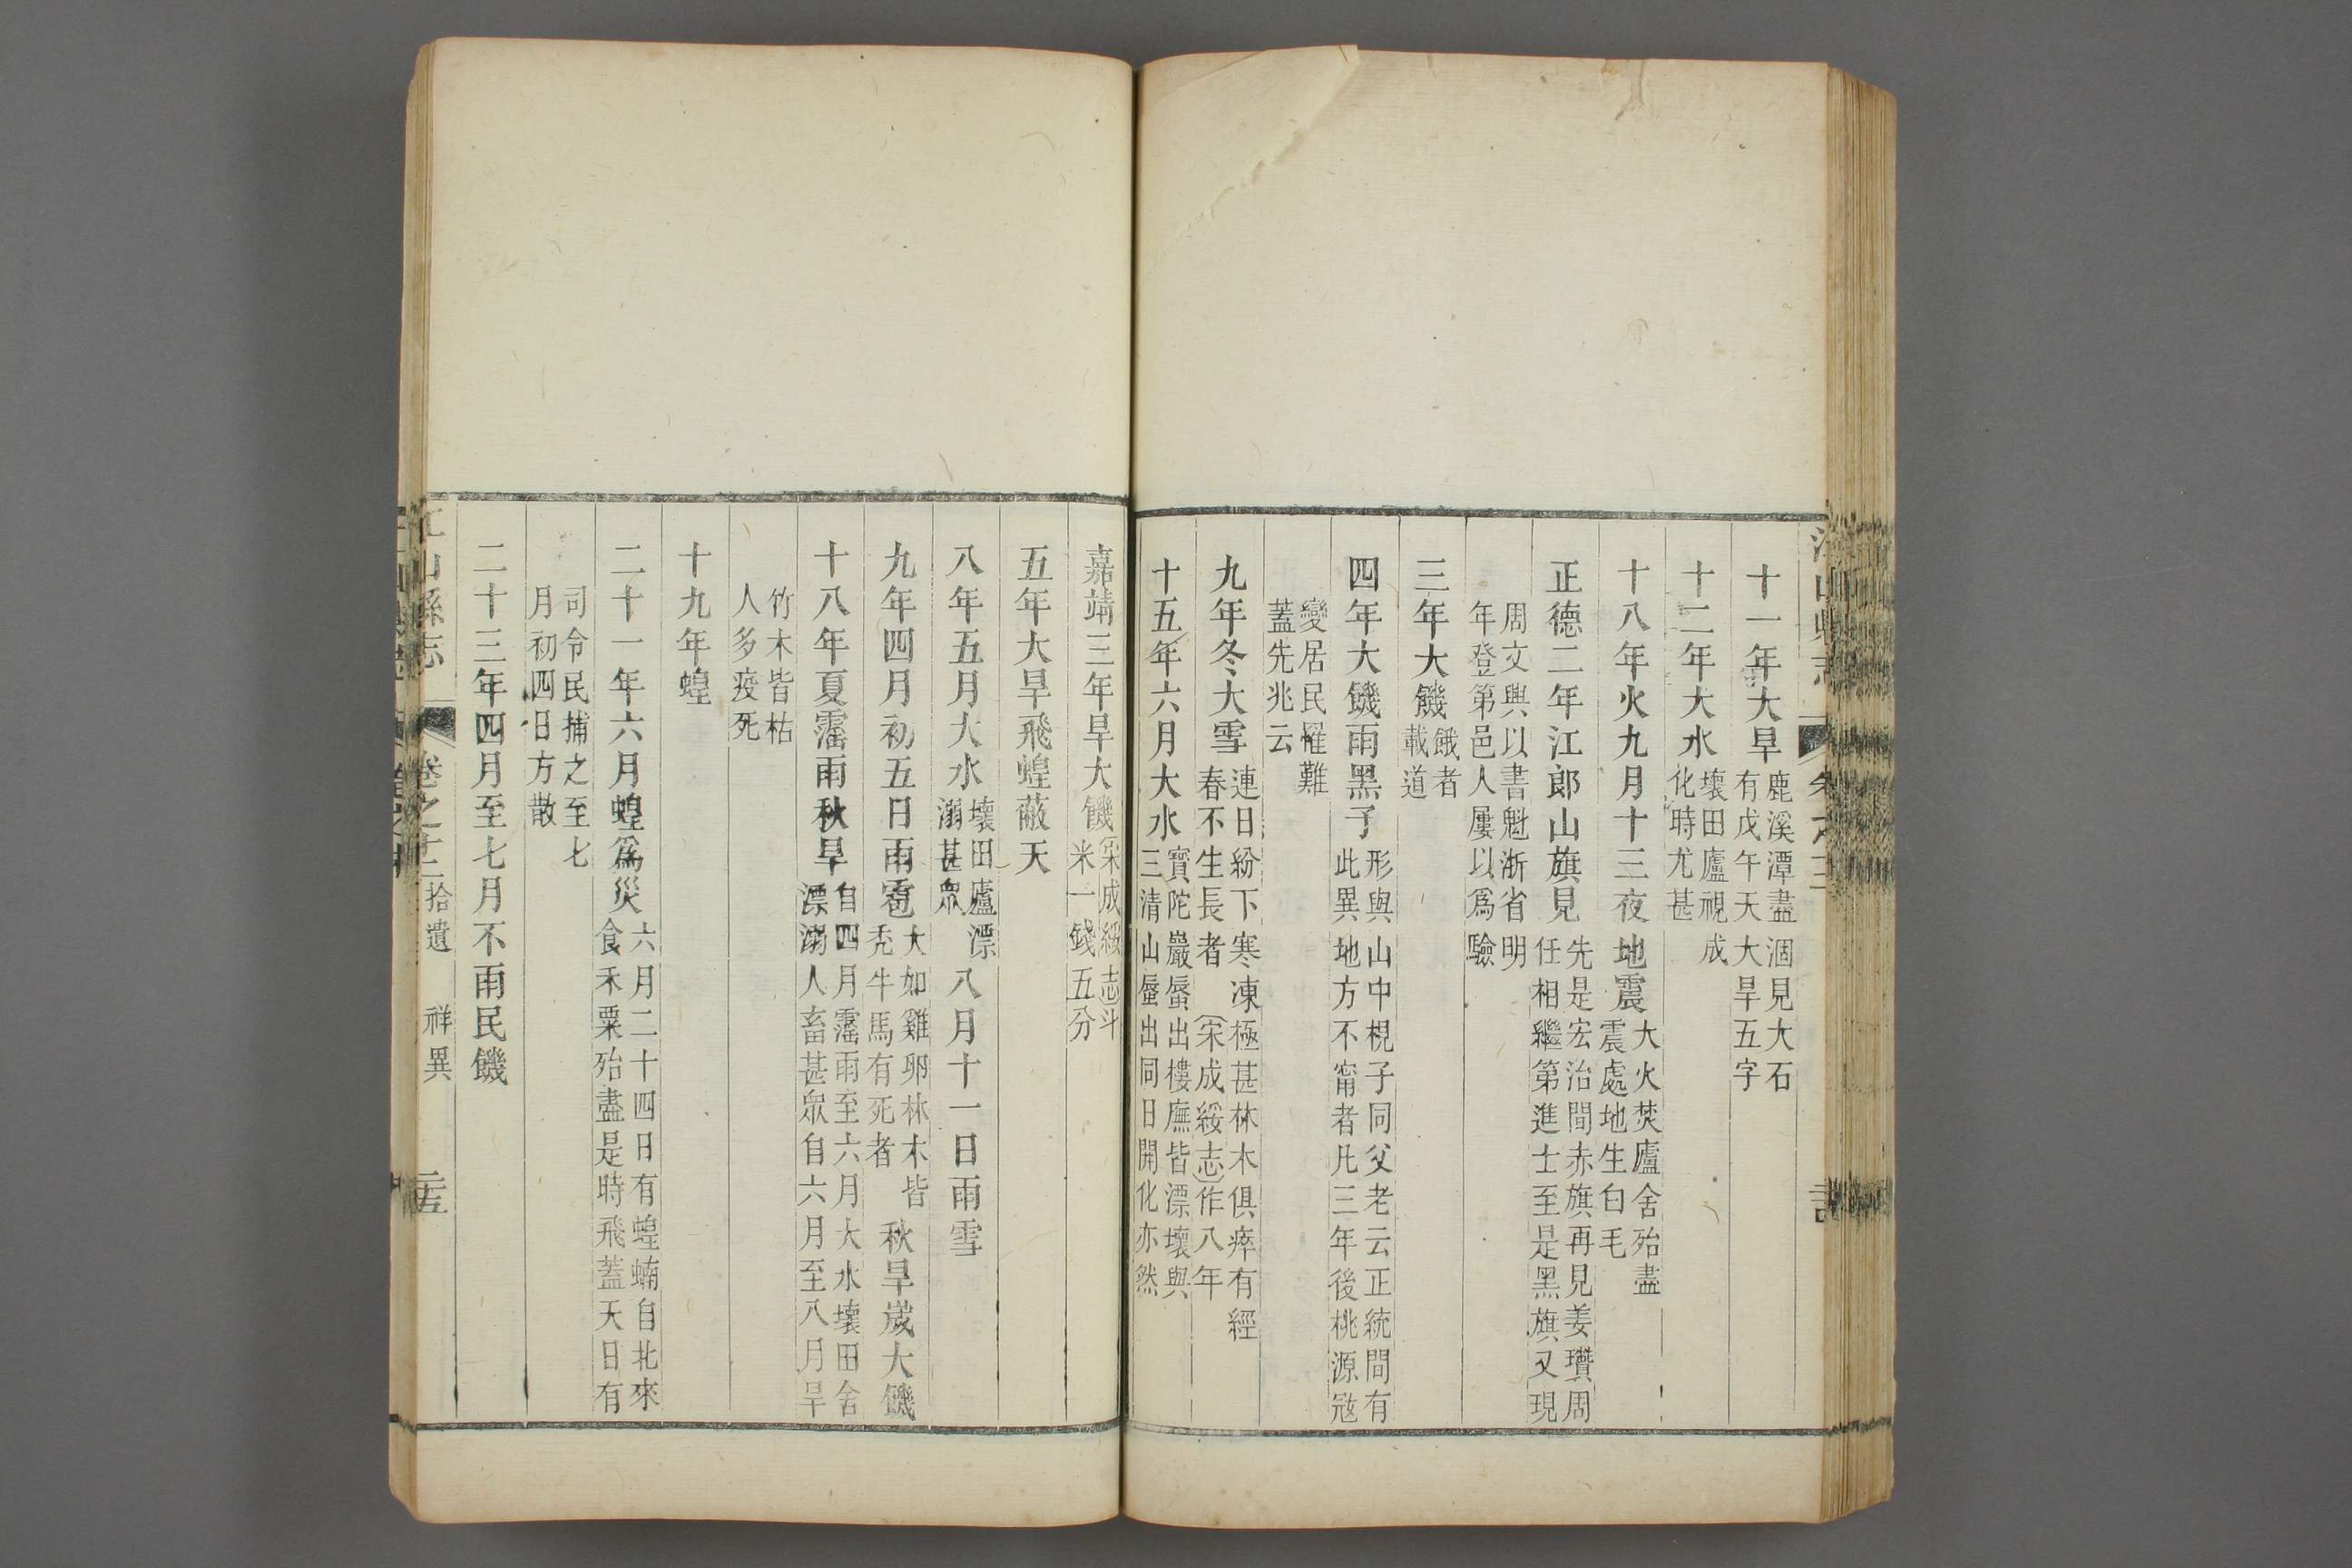 十一年大旱 鹿溪潭盡涸見大石
有戊午天大旱五字
十二年大水 壞田廬視成
化時尤甚
十八年火九月十三夜地震 大火焚廬舍殆盡
震處地生白毛
正德二年江郎山旗見 先是宏治間赤旗再見姜瓚周
任相繼第進士至是黑旗又現
周文與以書魁浙省明
年登第邑人屢以爲驗
三年大饑 餓者
載道
四年大饑雨黑子 形與山中梘子同父老云正統間有
此異地方不甯者凡三年後桃源寇
變居民罹難
蓋先兆云
九年冬大雪 連日紛下寒凍極甚林木俱瘁有經
春不生長者(宋成綏志)作八年
十五年六月大水 寶陀巖蜃出樓廡皆漂壞與
三清山蜃出同日開化亦然
嘉靖三年旱大饑 宋成綏志斗
米一錢五分
五年大旱飛蝗蔽天
八年五月大水 壞田廬漂
溺甚眾 八月十一日雨雪
九年四月初五日雨雹 大如雞卵林木皆
禿牛馬有死者 秋旱嵗大饑
十八年夏霪雨秋旱 自四月霪雨至六月大水壞田舍
漂溺人畜甚眾自六月至八月旱
竹木皆枯
人多疫死
十九年蝗
二十一年六月蝗爲災 六月二十四日有蝗蝻自北來
食禾粟殆盡是時飛蓋天日有
司令民捕之至七
月初四日方散
二十三年四月至七月不雨民饑
江山縣志 卷之十二 拾遺 祥異 二五